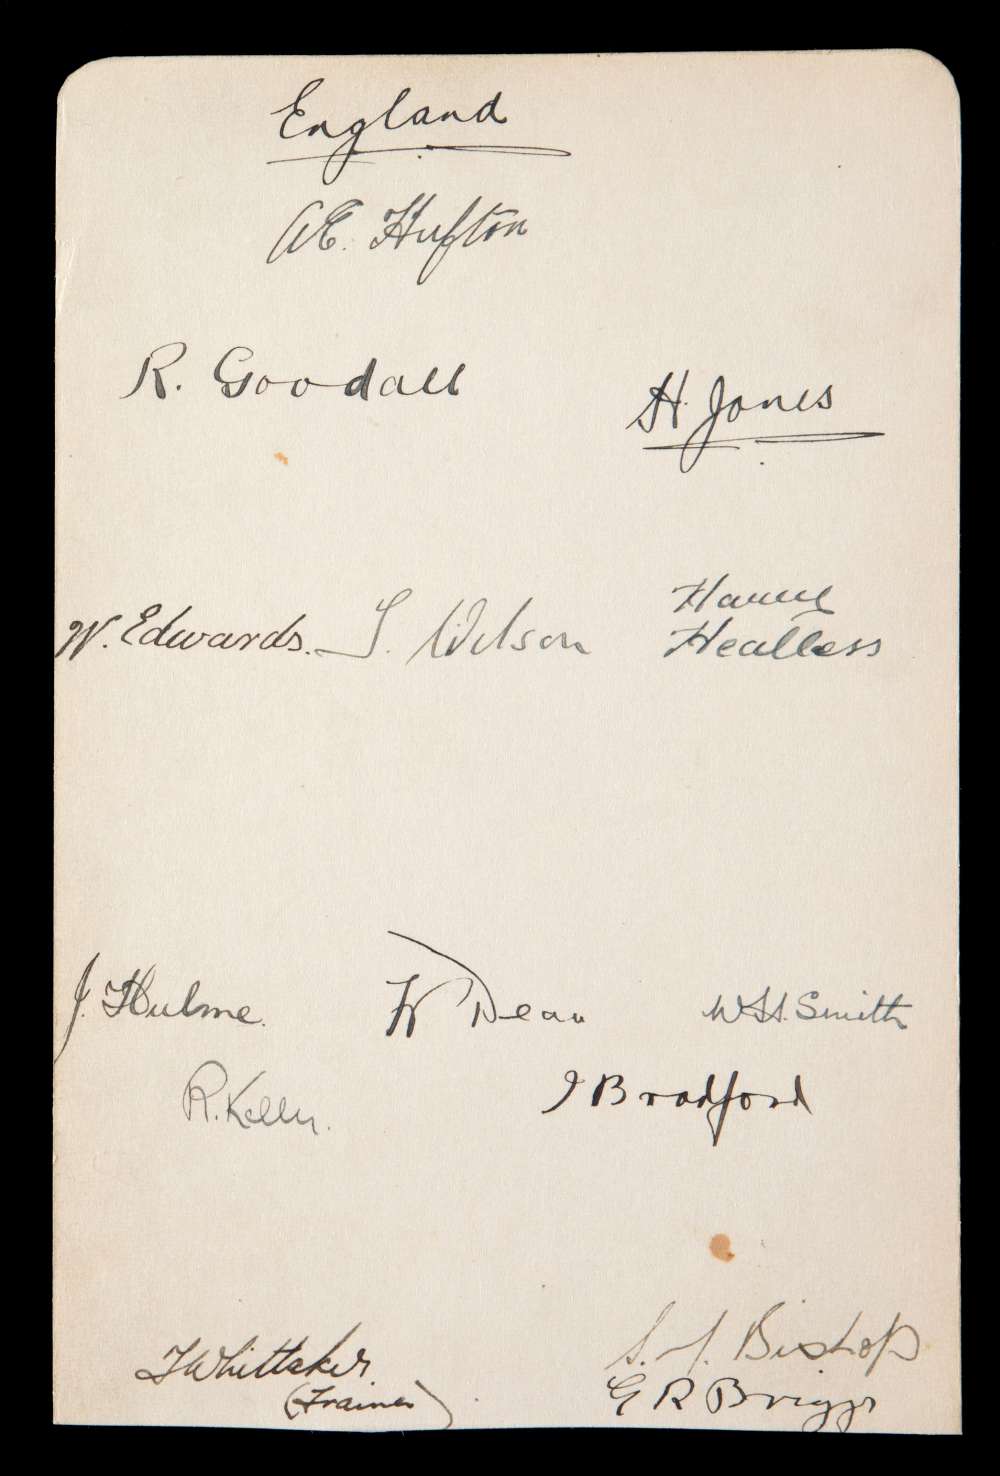 England
A E. Hufton
R. Goodall
H. Jones
W. Edwards. T. Wilson
Harry
Healless
J. Hulme.
W Dean
W H. Smith
R. Kelly.
J Bradford
T Whittaker
(Trainer)
S. J. Bishop
G R Briggs